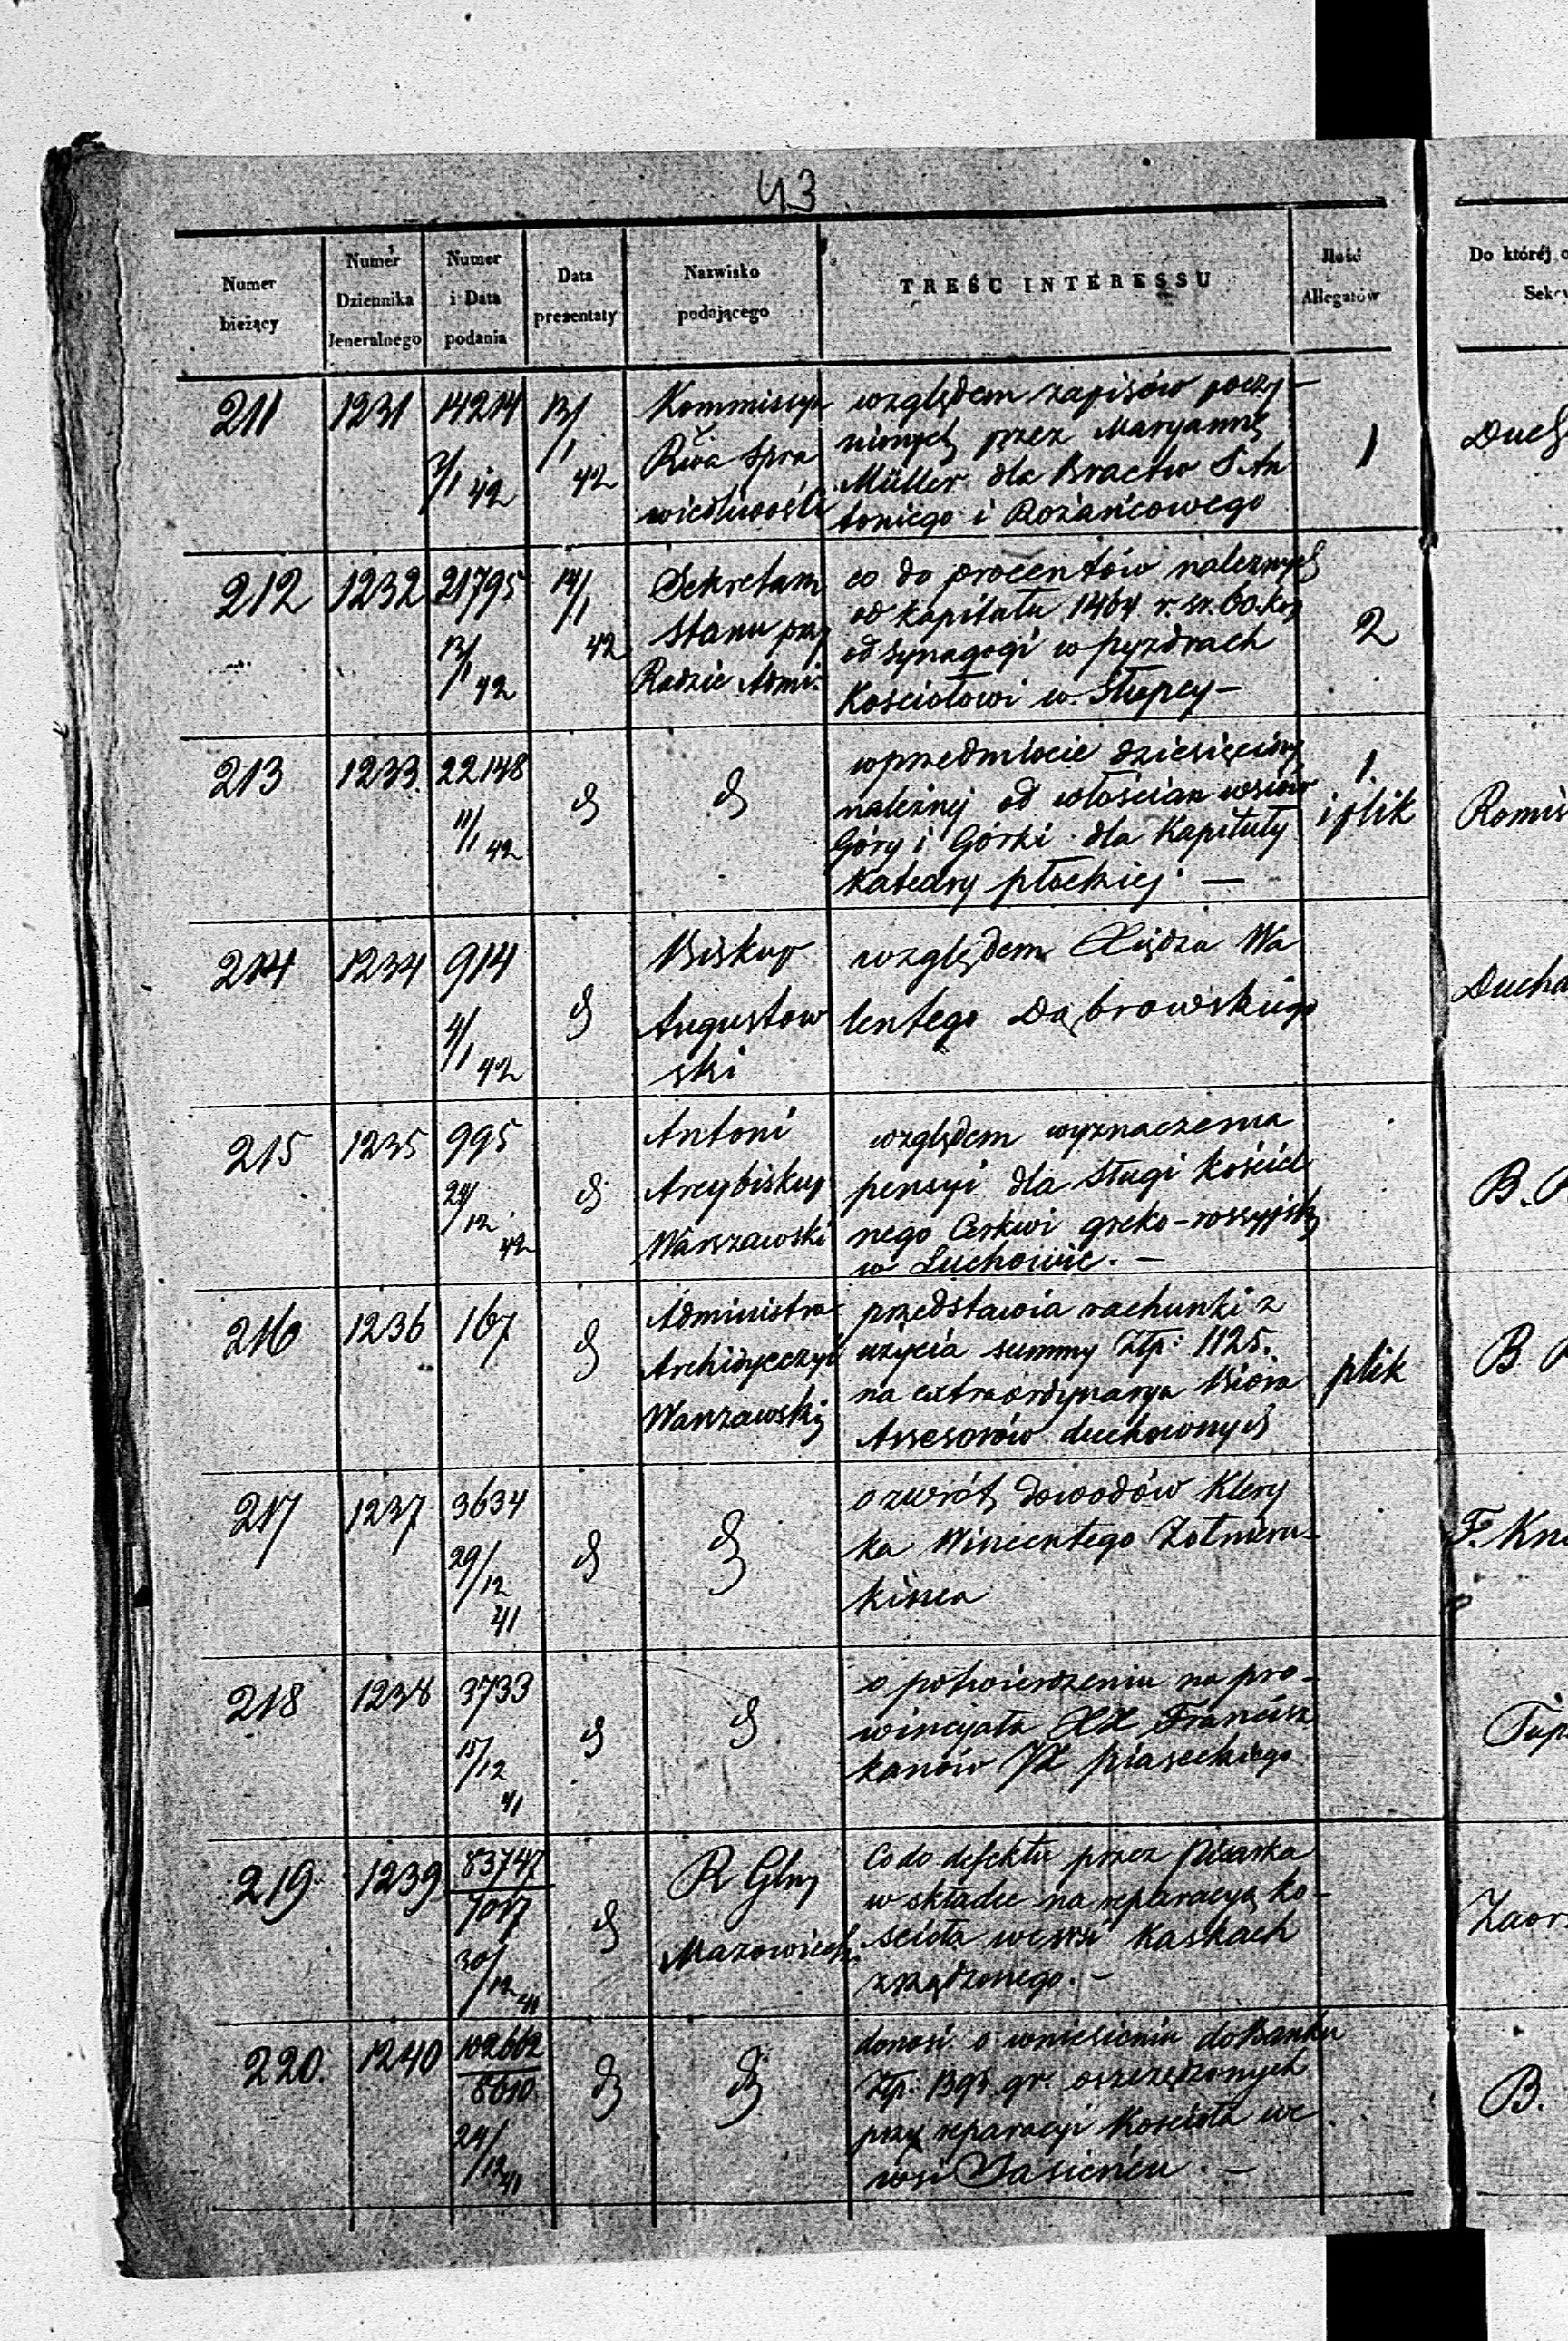 43
Numer bieżący | Numer Dziennika Jeneralnego | Numer i Data podania | Data prezentaty | Nazwisko podającego | TREŚĆ INTERESSU | Ilość Allegatów | Do której
211 | 1231 | 14214 | 13/1 | Kommissya | względem zapisów poczy-
3/1 42 | 42 | Rwa Spra | nionych przez Maryannę | 1 | Duch
wiedliwości | Müller dla Bractw S. An
toniego i Rożańcowego
212 | 1232 | 21795 | 14/1 | Sekretarz | co do procentów należnych
13/1 42 | 42 | Stanu przy | od kapitału 1464 r. sr. 60. kop | 2
Radzie Admi: | od Synagogi w Pyzdrach
Kościołowi w Słupcy –
213 | 1233. | 22148 | d | d | w przedmiocie dziesięciny | 1.
11/1 42 | należnej od włościan wsiów | i plik | Romis
Góry i Górki dla Kapituły
Katedry płockiej. —
214 | 1234 | 914 | d | Biskup | względem Xiędza Wa | Ducho
4/1 42 | Augustow | lentego Dąbrowskiego
ski
215 | 1235 | 995 | d | Antoni | względem wyznaczenia
24/12 42 | Arcybiskup | pensyi dla Sługi kościel | B.
Warszawski | nego Cerkwi greko-rossyjsk
w Łuchowie. –
216 | 1236 | 167 | d | Administra | przedstawia rachunki z
Archidyecezyi | użycia summy Złp: 1125. | plik | B.
Warszawskiej | na extraordynarya Biora
Assesorów duchownych
217 | 1237 | 3634 | d | d | o zwrot dowodów Klery
29/12 41 | ka Wincentego Żołnier- | F. Kn
218 | 1238 | 3733 | d | d | o potwierdzeniu na pro-
15/12 41 | wincyała XX Francisz
kanów JX Piaseckiego
219 | 1239 | 83747 | d | R Glny | Co do defektu przez Pisarka
30/12 41 | Mazowiecki | w składce na reparacyą ko- | Zaor
ścioła we wsi Kaskach
zrządzonego. –
220. | 1240 | 102662 | d | d | donosi o wniesieniu do Banku
8010 | Złp. 1393 gr. oszczędzonych | B.
24/12 41 | przy reparacyi Kościoła we
wsi Jasieńcu. –